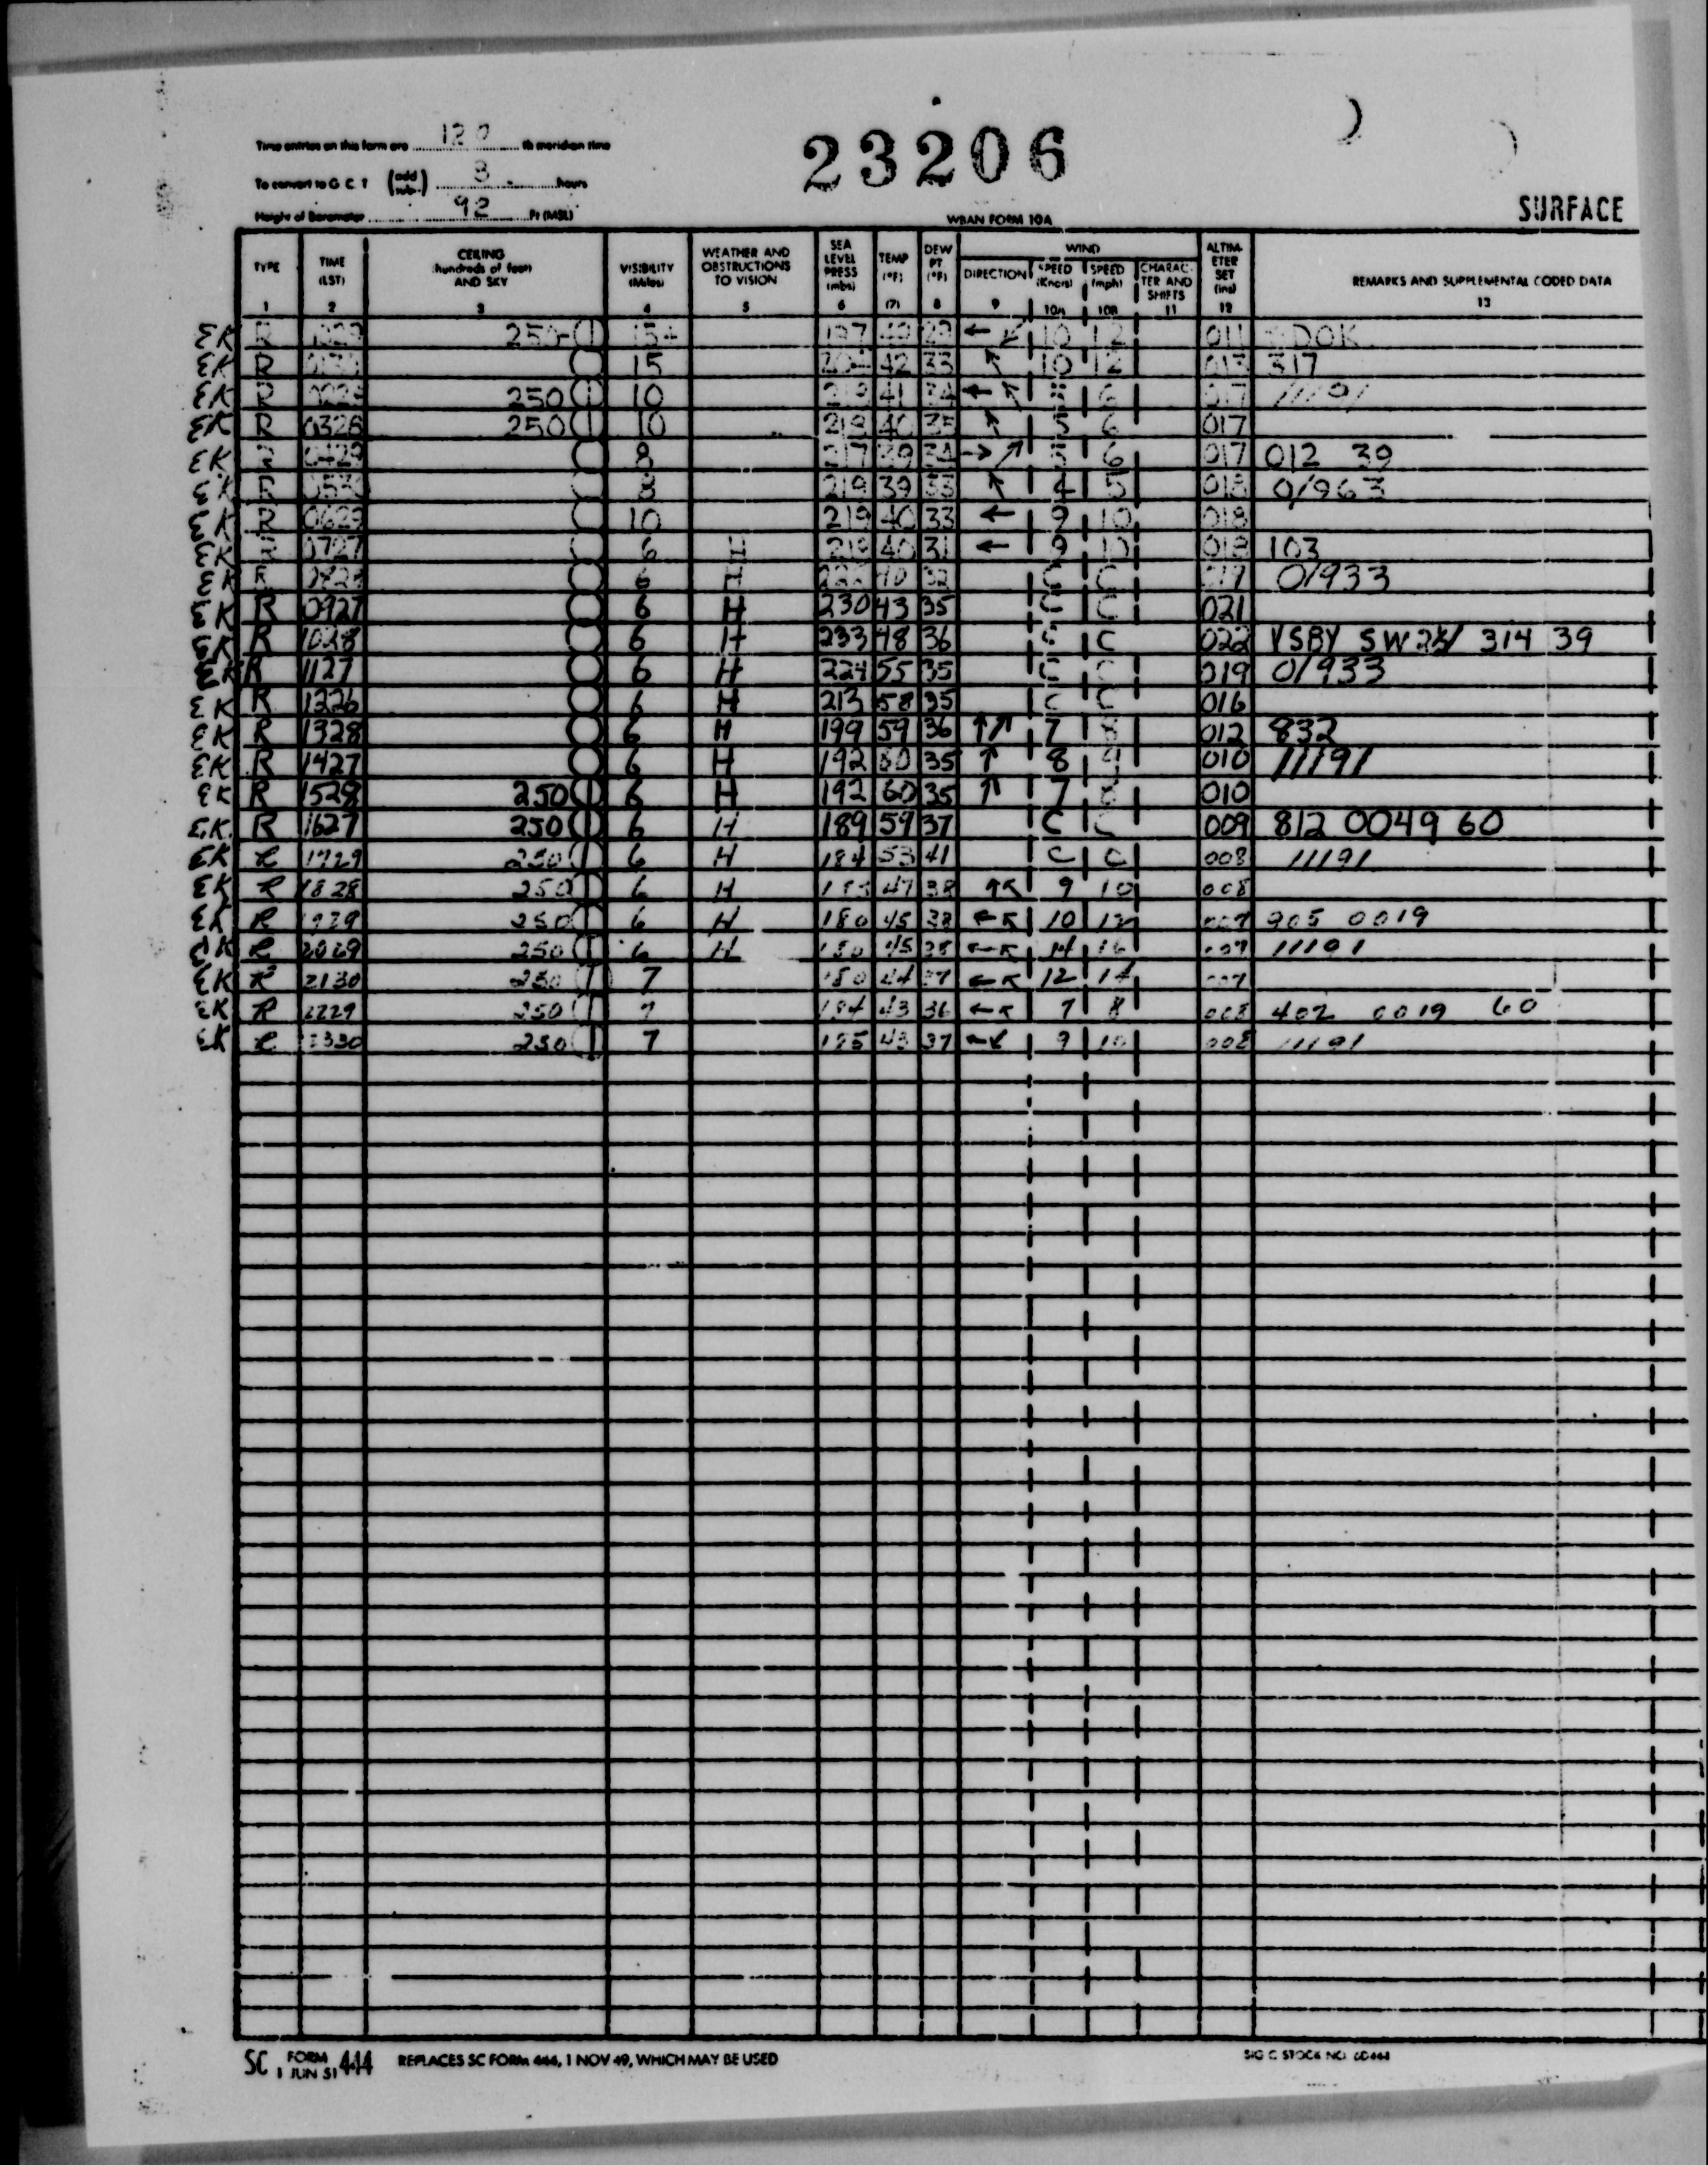 Time entries on this form are 120 th meridian time
23206
To convert to G C T (add sub.) 8 hours
Height of Barometer 92 Ft (MSL)
WBAN FORM 10A
SURFACE
TYPE 1 TIME (LST) 2 CEILING hundreds of feet AND SKY 3 VISIBILITY (Miles) 4 WEATHER AND OBSTRUCTIONS TO VISION 5 SEA LEVEL PRESS (mbs) 6 TEMP (°F) (7) DEW PT (°F) 8 WIND DIRECTION 9 SPEED (Knots) 10A SPEED (mph) 10B CHARAC- TER AND SHIFTS 11 ALTIM- ETER SET (ins) 12 REMARKS AND SUPPLEMENTAL CODED DATA 13
EK R 250-① 15+ 197 29 ← ↙ 10 12 011
EK R ○ 15 42 33 ↖ 10 12 013 317
EK R 250① 10 41 34 ← ↖ 5 6 017 11191
EK R 0328 250① 10 218 40 35 ↖ 5 6 017
EK R 0429 ○ 8 217 39 34 → ↗ 5 6 017 012 39
EK R ○ 8 219 39 33 ↖ 4 5 018 01963
EK R 0629 ○ 10 219 40 33 ← 9 10 018
EK R 0727 ○ 6 H 219 40 31 ← 9 10 018 103
EK R ○ 6 H 40 32 C C 019 01933
EK R 0927 ○ 6 H 230 43 35 C C 021
EK R 1028 ○ 6 H 233 48 36 C C 022 VSBY SW 314 39
EK R 1127 ○ 6 H 224 55 35 C C 019 01933
EK R 1226 ○ 6 H 213 58 35 C C 016
EK R 1328 ○ 6 H 199 59 36 ↑↗ 7 8 012 832
EK R 1427 ○ 6 H 192 60 35 ↑ 8 9 010 11191
EK R 1528 250① 6 H 192 60 35 ↑ 7 8 010
EK R 1627 250① 6 H 189 59 37 C C 009 812 0049 60
EK R 1729 250① 6 H 184 53 41 C C 008 11191
EK R 1828 250① 6 H 183 47 38 ↑↖ 9 10 008
EK R 1929 250① 6 H 180 45 38 ←↖ 10 12 007 905 0019
EK R 250① 6 H 180 45 38 ←↖ 14 16 007 11191
EK R 2130 250① 7 180 44 37 ←↖ 12 14 007
EK R 2229 250① 7 184 43 36 ←↖ 7 8 008 402 0019 60
EK R 2330 250① 7 185 43 37 ←↙ 9 10 008 11191
SC FORM 1 JUN 51 444 REPLACES SC FORM 444, 1 NOV 49, WHICH MAY BE USED
SIG C STOCK NO.